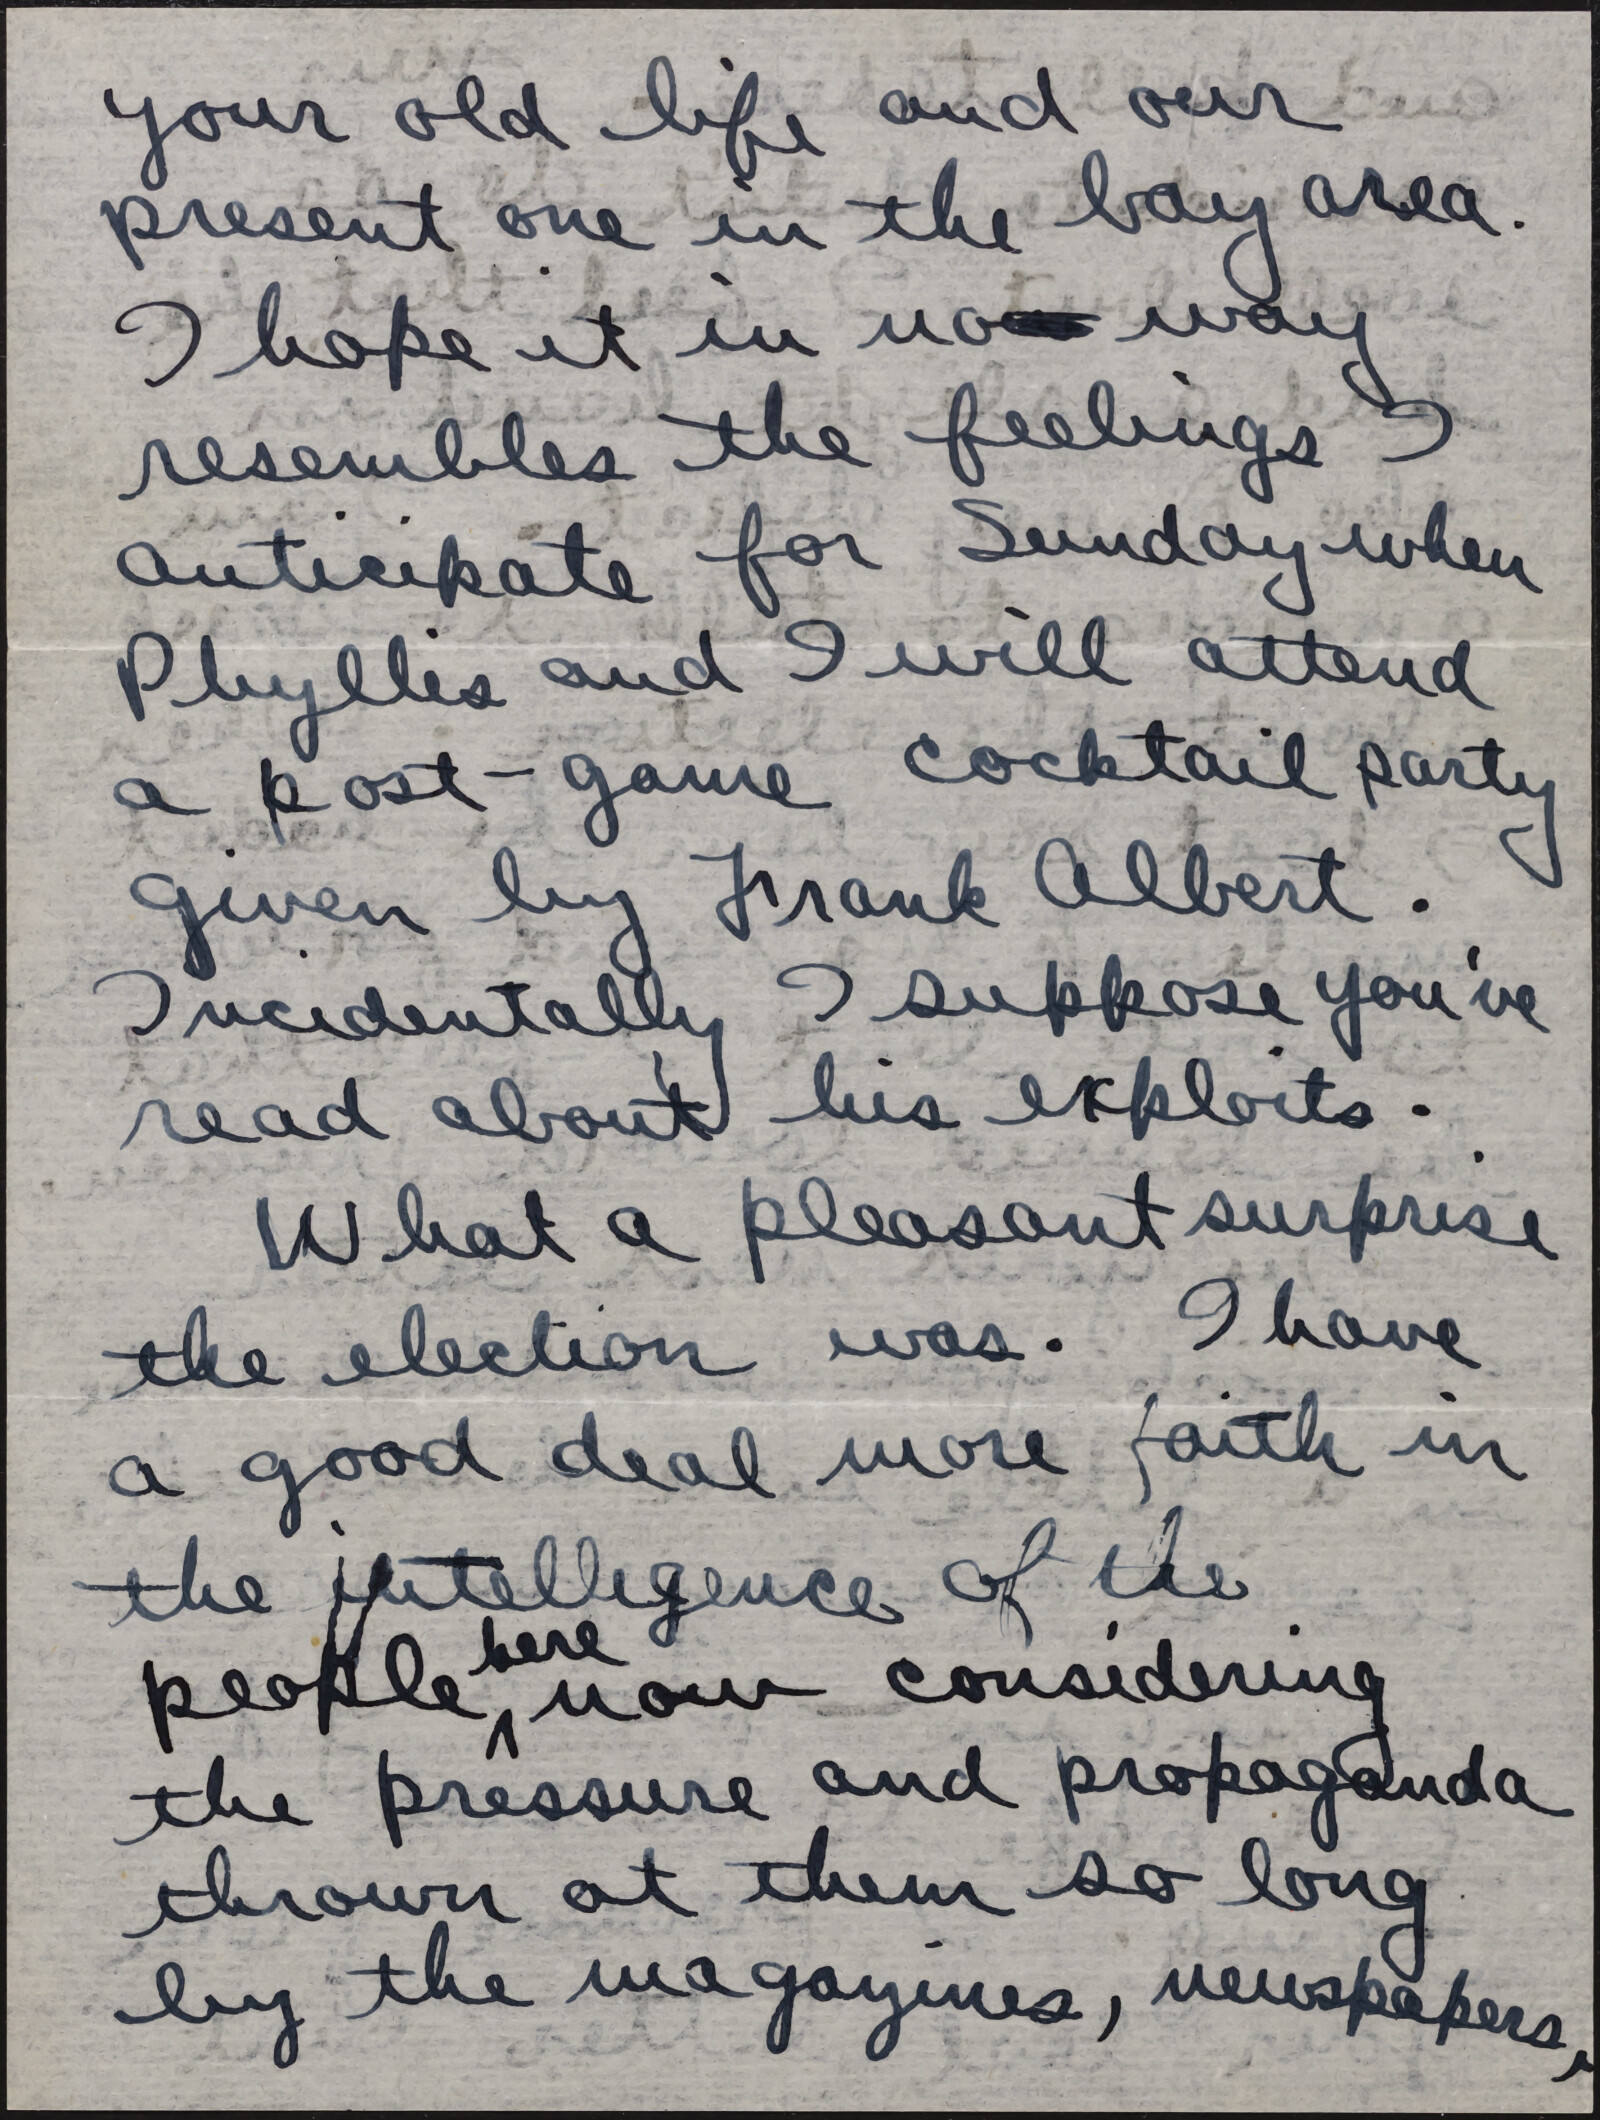 your old life and our
present one in the bay area.
I hope it in no way
resembles the feelings I
anticipate for Sunday when
Phyllis and I will attend
a post-game cocktail party
given by Frank Albert.
Incidentally I suppose you've
read about his exploits.
What a pleasant surprise
the election was. I have
a good deal more faith in
the intelligence of the
people, here now considering
the pressure and propaganda
thrown at them so long
by the magazines, newspapers,